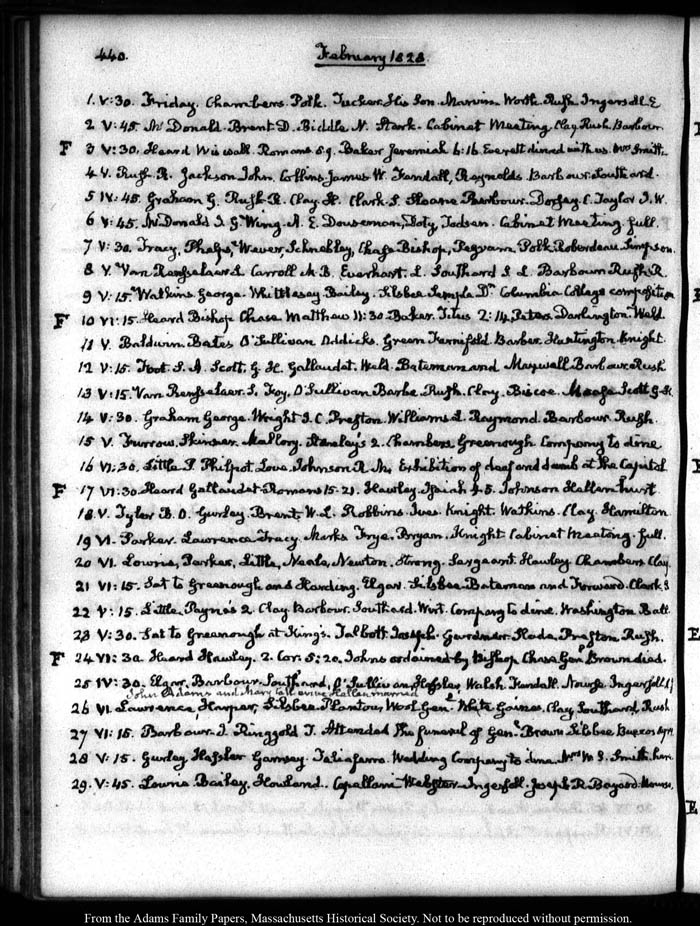 440.
February 1828.
1. V:30. Friday. Chambers. Polk. Tucker. His Son. Marvin. Worth. Rush. Ingersoll E
2 V:45. McDonald. Brent D. Biddle N. Stark. Cabinet Meeting Clay Rush Barbour.
F 3 V:30. Heard Wiswall. Romans 5.9. Baker Jeremiah 6:16 Everett dined with us. Mrs Smith.
4 V. Rush R. Jackson John. Collins. James W. Kendall, Reynolds. Barbour. Southard.
5 IV:45. Graham G. Rush R. Clay H. Clark S. Sloane Barbour. Dorsey C. Taylor J. W.
6 V:45. McDonald J. G. Wing. A. E. Douseman, Doty, Cabinet Meeting full.
7 V:30. Tracy, Phelps, Wever, Schnebley, Chase Bishop, Pegram. Polk Roberdeau Simpson.
8 V. Van Rensselaer S. Carroll M. B. Everhart. L. Southard S. L Barbour Rush R.
9 V:15. Watkins George. Whittlesey Bailey. Silsbee Semple Dr. Columbia College composition
F 10 VI:15. Heard Bishop Chase Matthew 11:30. Baker. Titus 2:14. Peters. Darlington. Weld.
11 V. Baldwin. Bates O'Sullivan Addicks. Green Barber. Huntington Knight.
12 V:15. Foot. S. A. Scott, G. H. Gallaudet. Weld. Bateman and Maxwell Barbour. Rush
13 V:15. Van Rensselaer S. Foy. O'Sullivan Barbe Rush. Clay. Biscoe. Scott G.
14 V:30. Graham George. Wright J. C. Preston. Williams L. Raymond. Barbour. Rush.
15 V. Furrow. Skinner. Mallory. Stansley's 2. Chambers. Greenough Company to dine
16 VI:30. Little P. Philpot. Love. Johnson R. M. Exhibition of deaf and dumb at the Capitol
F 17 VI:30. Heard Gallaudet Romans 15.21. Hawley. Isaiah 4.5. Johnson Hellen hurt.
18 V. Tyler B. O. Gurley. Brent, W. L. Robbins. Ives. Knight. Watkins. Clay. Hamilton
19 VI. Parker. Lawrence. Tracy. Marks Frye. Bryan. Knight Cabinet Meeting. full.
20 VI. Lowrie, Parker, Little, Neale, Newton. Strong. Sergeant. Hawley Chambers Clay.
21 VI:15. Sat to Greenough and Harding. Elgar. Silsbee. Bateman and Forward. Clark S
22 V:15. Little. Payne's 2. Clay Barbour. Southard. Wirt. Company to dine. Washington Ball
23 V:30. Sat to Greenough at King's. Talbott. Joseph. Gardner. Preston Rush.
F 24 VI:30. Heard Hawley. 2. Cor. 5:20. Johns ordained by Bishop Chase. Genl Brown died.
25 IV:30. Elgar, Barbour, Southard, O'Sullivan, Hassler, Walsh, Kendall. Nourse. Ingersoll
John Adams and Mary Catherine Hellen married
26 VI. Lawrence, Harper, Silsbee. Wool Genl. White Gaines. Clay, Southard, Rush
27 VI:15. Barbour. J. Ringgold T. Attended the funeral of Genl Brown Silsbee
28 V:15. Gurley. Hassler Gamsey. Taliaferro. Wedding Company to dine. Mrs W. S. Smith. her
29. V:45. Lowrie Bailey. Howland. Capellani Webster. Ingersoll. Joseph R. Bayard. Nourse.
From the Adams Family Papers, Massachusetts Historical Society. Not to be reproduced without permission.